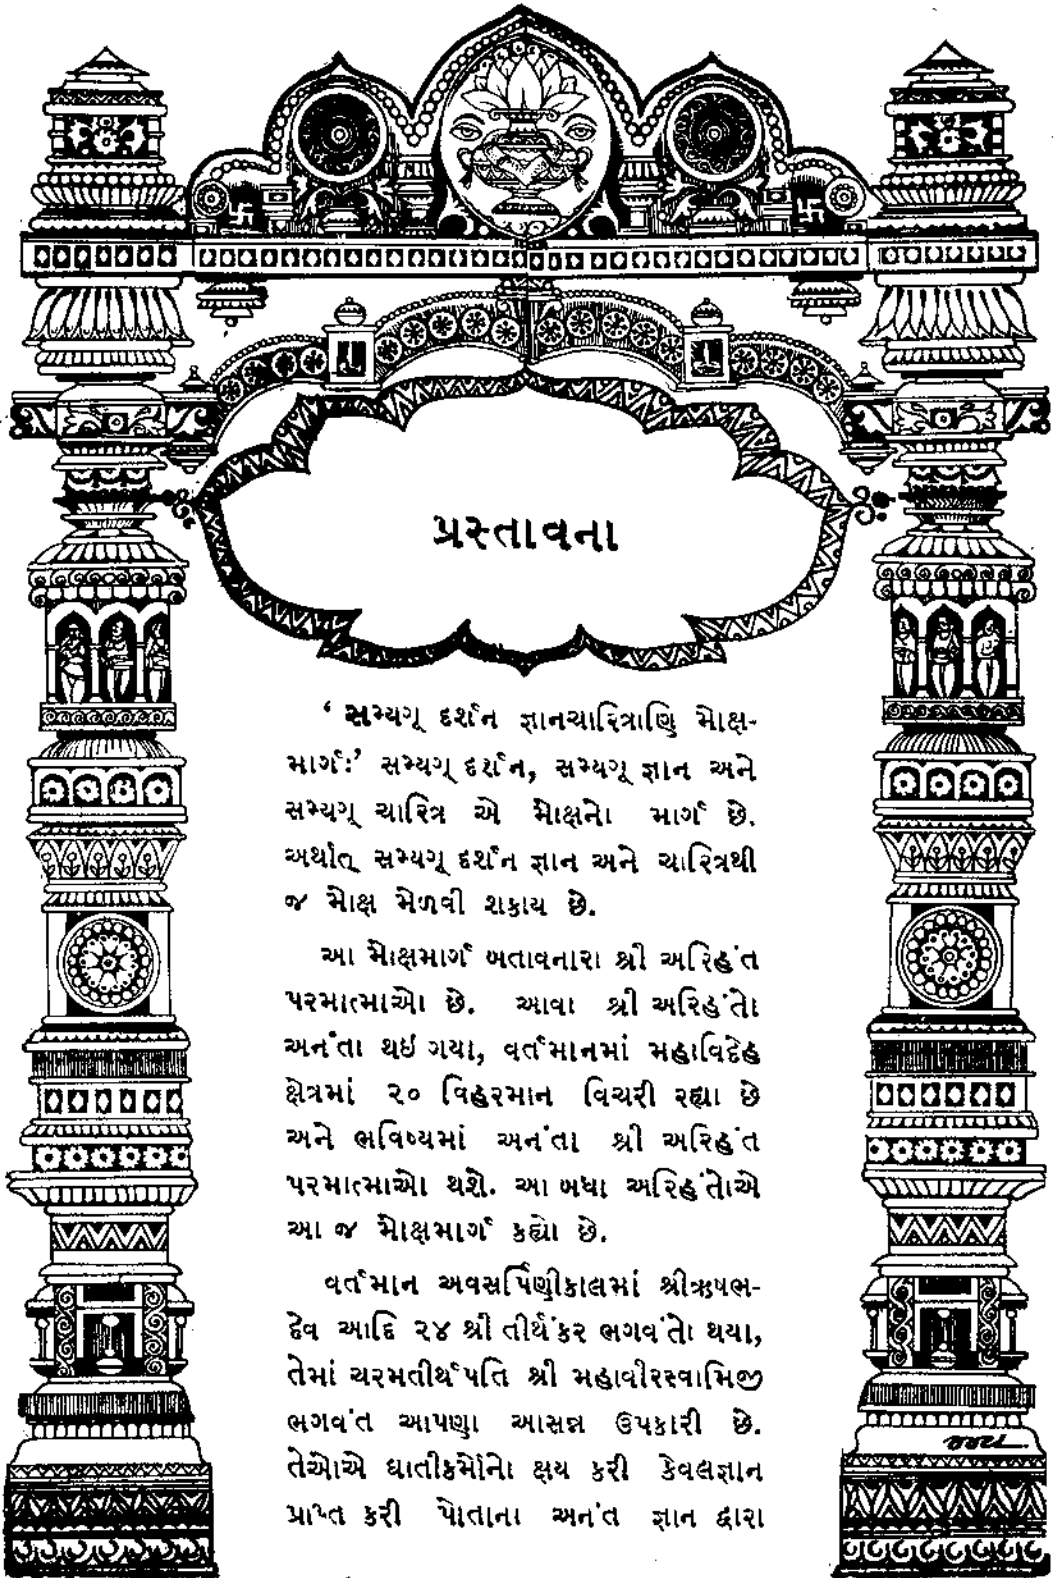 પ્રસ્તાવના
‘ સમ્યગ્ દર્શન જ્ઞાનચારિત્રાણિ મોક્ષ-
માર્ગઃ’ સમ્યગ્ દર્શન, સમ્યગ્ જ્ઞાન અને
સમ્યગ્ ચારિત્ર એ મોક્ષનો માર્ગ છે.
અર્થાત્ સમ્યગ્ દર્શન જ્ઞાન અને ચારિત્રથી
જ મોક્ષ મેળવી શકાય છે.
આ મોક્ષમાર્ગ બતાવનારા શ્રી અરિહંત
પરમાત્માઓ છે. આવા શ્રી અરિહંતો
અનંતા થઈ ગયા, વર્તમાનમાં મહાવિદેહ
ક્ષેત્રમાં ૨૦ વિહરમાન વિચરી રહ્યા છે
અને ભવિષ્યમાં અનંતા શ્રી અરિહંત
પરમાત્માઓ થશે. આ બધા અરિહંતોએ
આ જ મોક્ષમાર્ગ કહ્યો છે.
વર્તમાન અવસર્પિણીકાલમાં શ્રીઋષભ-
દેવ આદિ ૨૪ શ્રી તીર્થંકર ભગવંતો થયા,
તેમાં ચરમતીર્થપતિ શ્રી મહાવીરસ્વામિજી
ભગવંત આપણા આસન્ન ઉપકારી છે.
તેઓએ ઘાતીકર્મોનો ક્ષય કરી કેવલજ્ઞાન
પ્રાપ્ત કરી પોતાના અનંત જ્ઞાન દ્વારા